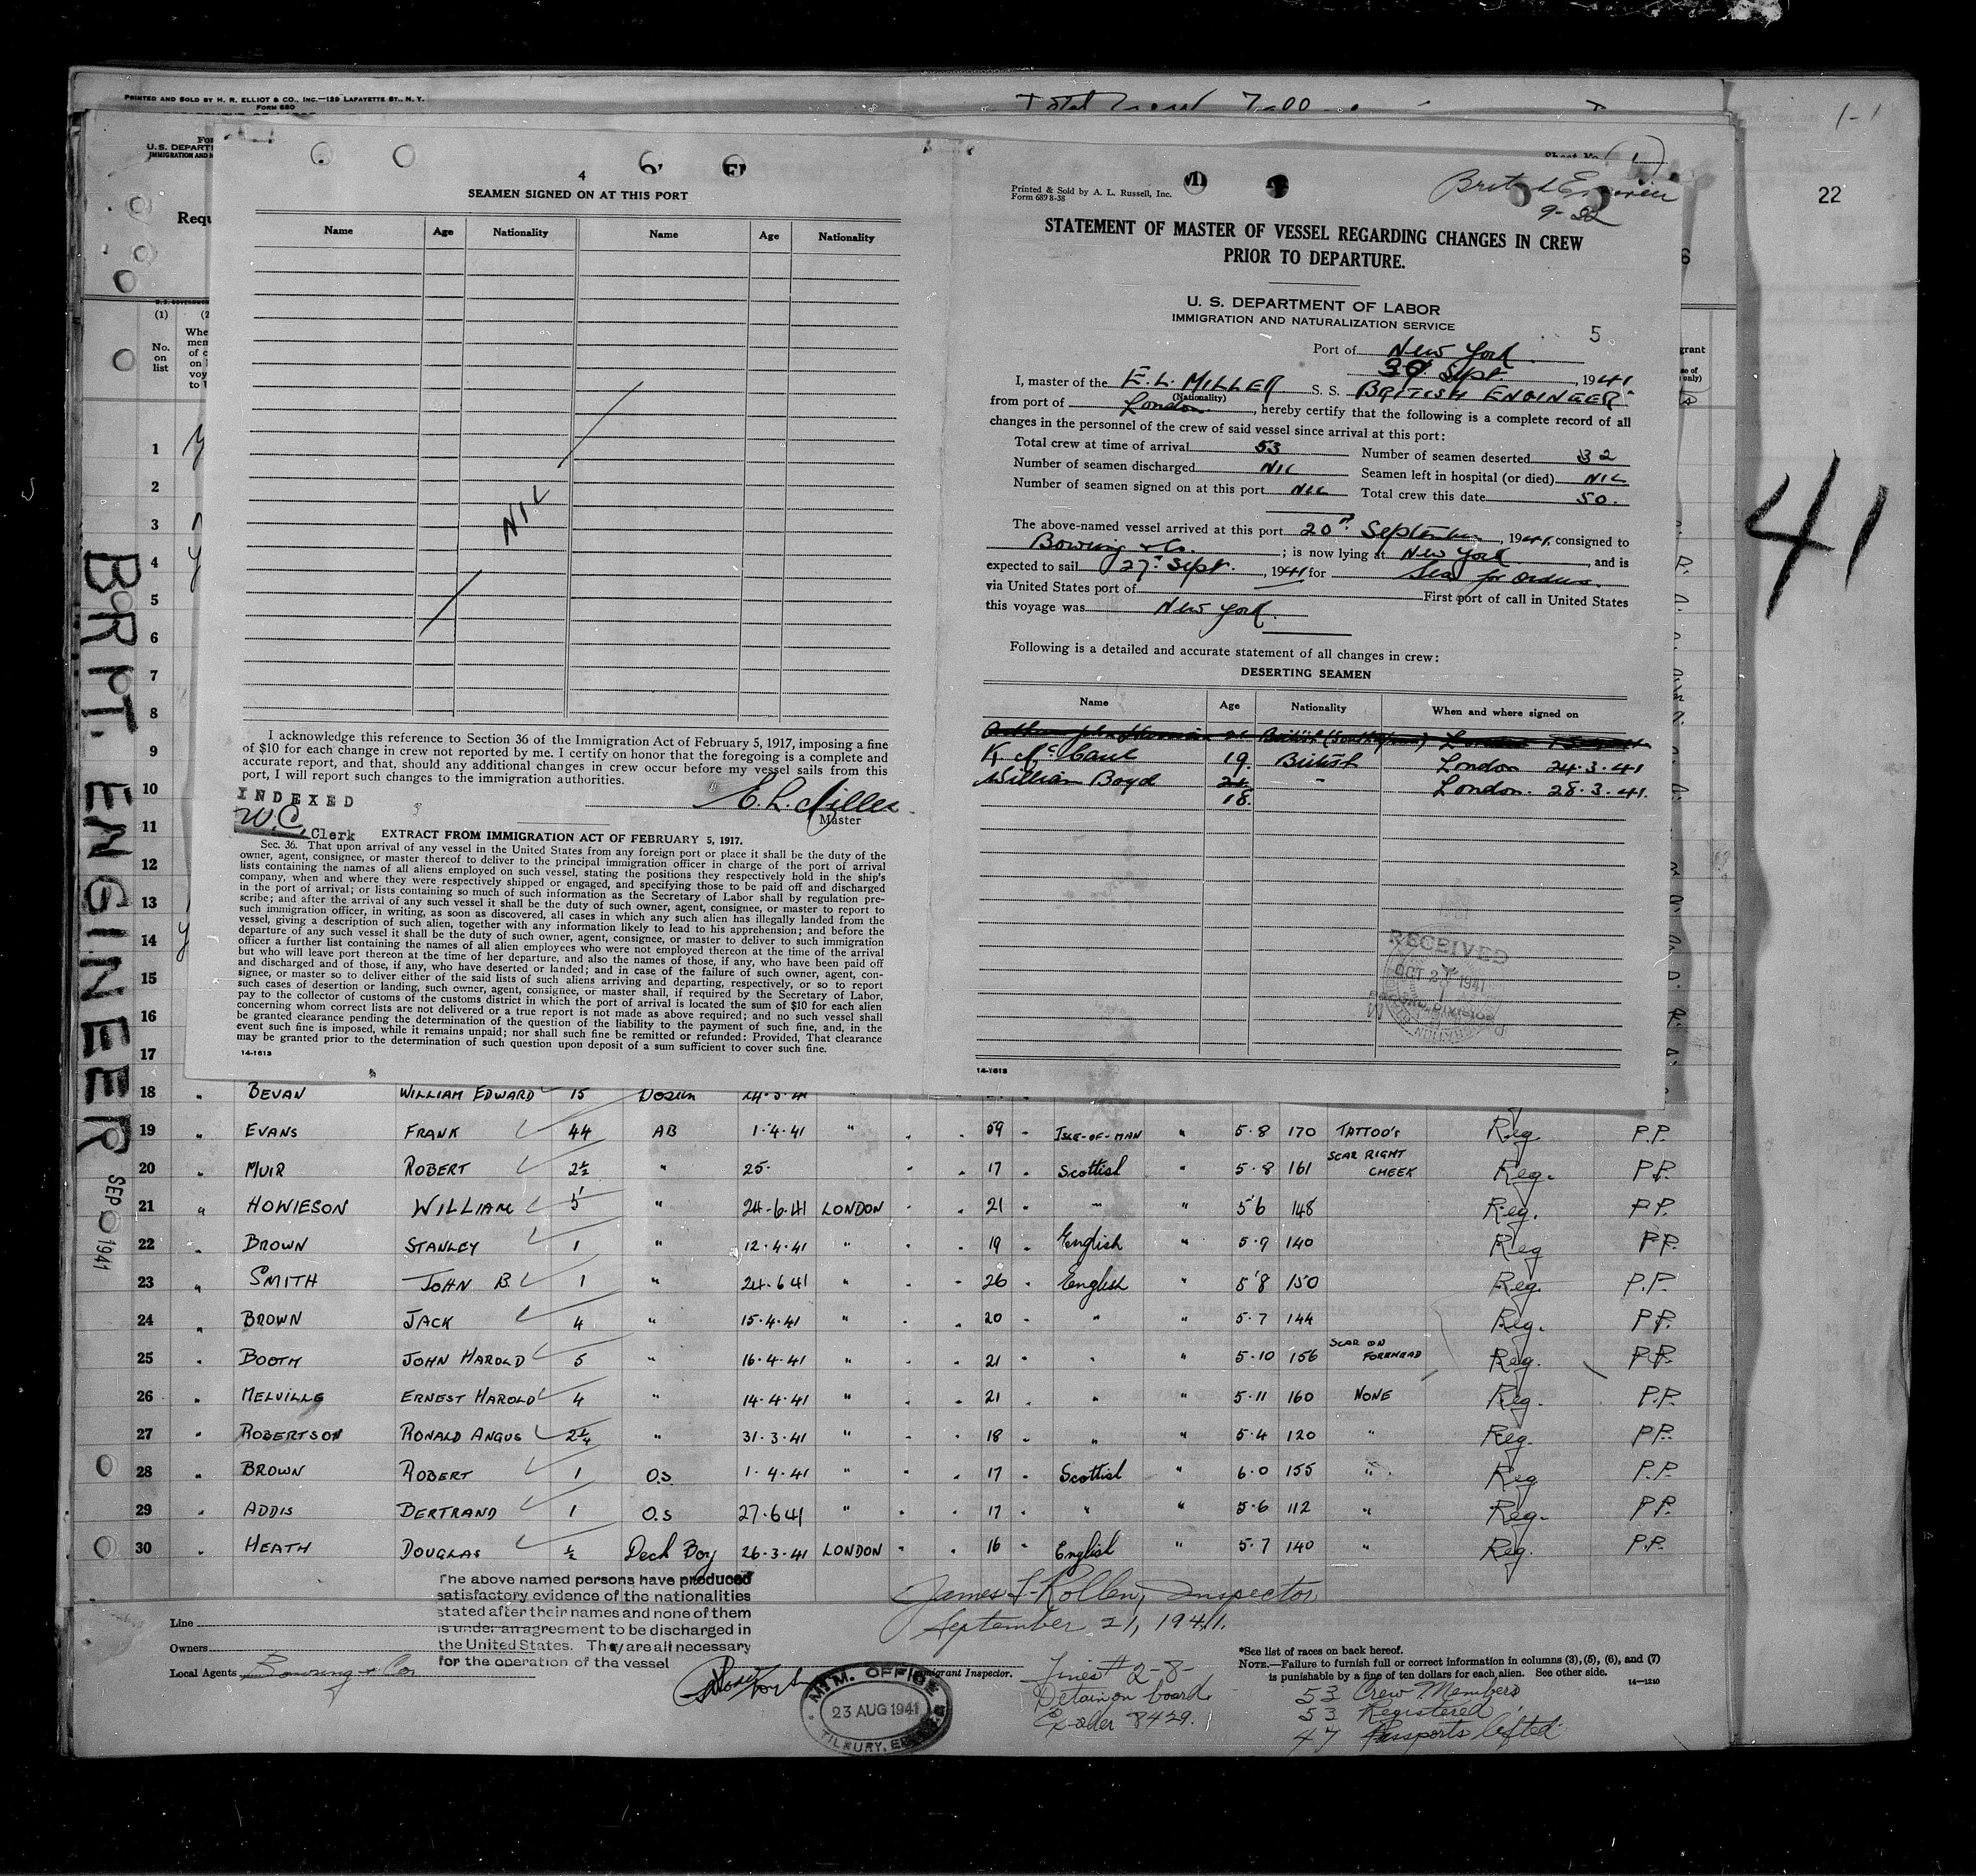 PRINTED AND SOLD BY H. R. ELLIOT & CO., INC.—129 LAFAYETTE ST., N. Y.
FORM 680
Total 7-00
1-1
22
41
U. S. DEPARTI
IMMIGRATION AND N
Requ
(1)
No.
on
list
BRIT. ENGINEER
SEP 1941
4
SEAMEN SIGNED ON AT THIS PORT
Name Age Nationality Name Age Nationality
NIL
I acknowledge this reference to Section 36 of the Immigration Act of February 5, 1917, imposing a fine
of $10 for each change in crew not reported by me. I certify on honor that the foregoing is a complete and
accurate report, and that, should any additional changes in crew occur before my vessel sails from this
port, I will report such changes to the immigration authorities.
INDEXED
W.C. Clerk
E. L. Miller
Master
EXTRACT FROM IMMIGRATION ACT OF FEBRUARY 5, 1917.
Sec. 36. That upon arrival of any vessel in the United States from any foreign port or place it shall be the duty of the
owner, agent, consignee, or master thereof to deliver to the principal immigration officer in charge of the port of arrival
lists containing the names of all aliens employed on such vessel, stating the positions they respectively hold in the ship's
company, when and where they were respectively shipped or engaged, and specifying those to be paid off and discharged
in the port of arrival; or lists containing so much of such information as the Secretary of Labor shall by regulation pre-
scribe; and after the arrival of any such vessel it shall be the duty of such owner, agent, consignee, or master to report to
such immigration officer, in writing, as soon as discovered, all cases in which any such alien has illegally landed from the
vessel, giving a description of such alien, together with any information likely to lead to his apprehension; and before the
departure of any such vessel it shall be the duty of such owner, agent, consignee, or master to deliver to such immigration
officer a further list containing the names of all alien employees who were not employed thereon at the time of the arrival
but who will leave port thereon at the time of her departure, and also the names of those, if any, who have been paid off
and discharged and of those, if any, who have deserted or landed; and in case of the failure of such owner, agent, con-
signee, or master so to deliver either of the said lists of such aliens arriving and departing, respectively, or so to report
such cases of desertion or landing, such owner, agent, consignee, or master shall, if required by the Secretary of Labor,
pay to the collector of customs of the customs district in which the port of arrival is located the sum of $10 for each alien
concerning whom correct lists are not delivered or a true report is not made as above required; and no such vessel shall
be granted clearance pending the determination of the question of the liability to the payment of such fine, and, in the
event such fine is imposed, while it remains unpaid; nor shall such fine be remitted or refunded: Provided, That clearance
may be granted prior to the determination of such question upon deposit of a sum sufficient to cover such fine.
14-1613
Printed & Sold by A. L. Russell, Inc.
Form 689 8-38
British Engineer
9-22
STATEMENT OF MASTER OF VESSEL REGARDING CHANGES IN CREW
PRIOR TO DEPARTURE.
U. S. DEPARTMENT OF LABOR
IMMIGRATION AND NATURALIZATION SERVICE
5
Port of New York
Sept. , 1941
I, master of the E. L. MILLER S. S. BRITISH ENGINEER
(Nationality)
from port of London , hereby certify that the following is a complete record of all
changes in the personnel of the crew of said vessel since arrival at this port:
Total crew at time of arrival 53 Number of seamen deserted 32
Number of seamen discharged NIL Seamen left in hospital (or died) NIL
Number of seamen signed on at this port NIL Total crew this date 50.
The above-named vessel arrived at this port 20th September , 1941 consigned to
Bowring & Co. ; is now lying at New York , and is
expected to sail 27th Sept. , 1941 for Sea for orders.
via United States port of First port of call in United States
this voyage was New York.
Following is a detailed and accurate statement of all changes in crew:
DESERTING SEAMEN
Name Age Nationality When and where signed on
K. McCaul 19. British London 24.3.41
William Boyd 18. " London. 28.3.41.
RECEIVED
OCT 2 1941
14-1613
1
2
3
4
5
6
7
8
9
10
11
12
13
14
15
16
17
18 " BEVAN WILLIAM EDWARD 15 Bosun 24.3.41
19 " EVANS FRANK 44 AB 1.4.41 " 59 " ISLE-OF-MAN " 5.8 170 TATTOO'S Reg. P.P.
20 " MUIR ROBERT 2½ " 25. 17 Scottish " 5.8 161 SCAR RIGHT CHEEK Reg. P.P.
21 " HOWIESON WILLIAM 5 " 24-6-41 LONDON 21 " " " 5'6 148 Reg. P.P.
22 " BROWN STANLEY 1 " 12.4.41 " 19 " English " 5.9 140 Reg P.P.
23 " SMITH JOHN B. 1 " 24.6 41 " 26 " English " 5'8 150 Reg. P.P.
24 " BROWN JACK 4 " 15.4.41 " 20 " " " 5.7 144 Reg. P.P.
25 " BOOTH JOHN HAROLD 5 " 16.4.41 " 21 " " " 5.10 156 SCAR ON FOREHEAD Reg. P.P.
26 " MELVILLE ERNEST HAROLD 4 " 14.4.41 " 21 " " " 5.11 160 NONE Reg. P.P.
27 " ROBERTSON RONALD ANGUS 2¼ " 31.3.41 " 18 " " " 5.4 120 " Reg. P.P.
28 " BROWN ROBERT 1 O.S. 1.4.41 " 17 " Scottish " 6.0 155 " Reg P.P.
29 " ADDIS BERTRAND 1 O.S 27.6 41 " 17 " " " 5.6 112 " Reg. P.P.
30 " HEATH DOUGLAS ½ Deck Boy 26.3.41 LONDON " 16 " English " 5.7 140 " Reg. P.P.
The above named persons have produced
satisfactory evidence of the nationalities
stated after their names and none of them
is under an agreement to be discharged in
the United States. They are all necessary
for the operation of the vessel
James Inspector
September 21, 1941.
Line
Owners
Local Agents Bowring & Co
Immigrant Inspector.
M.T.M. OFFICE
23 AUG 1941
TILBURY, ESSEX
Lines # 2-8-
Detain on board
Ex order 8429.
*See list of races on back hereof.
NOTE.—Failure to furnish full or correct information in columns (3), (5), (6), and (7)
is punishable by a fine of ten dollars for each alien. See other side.
14-1240
53 Crew Members
53 Registered
47 Passports lifted